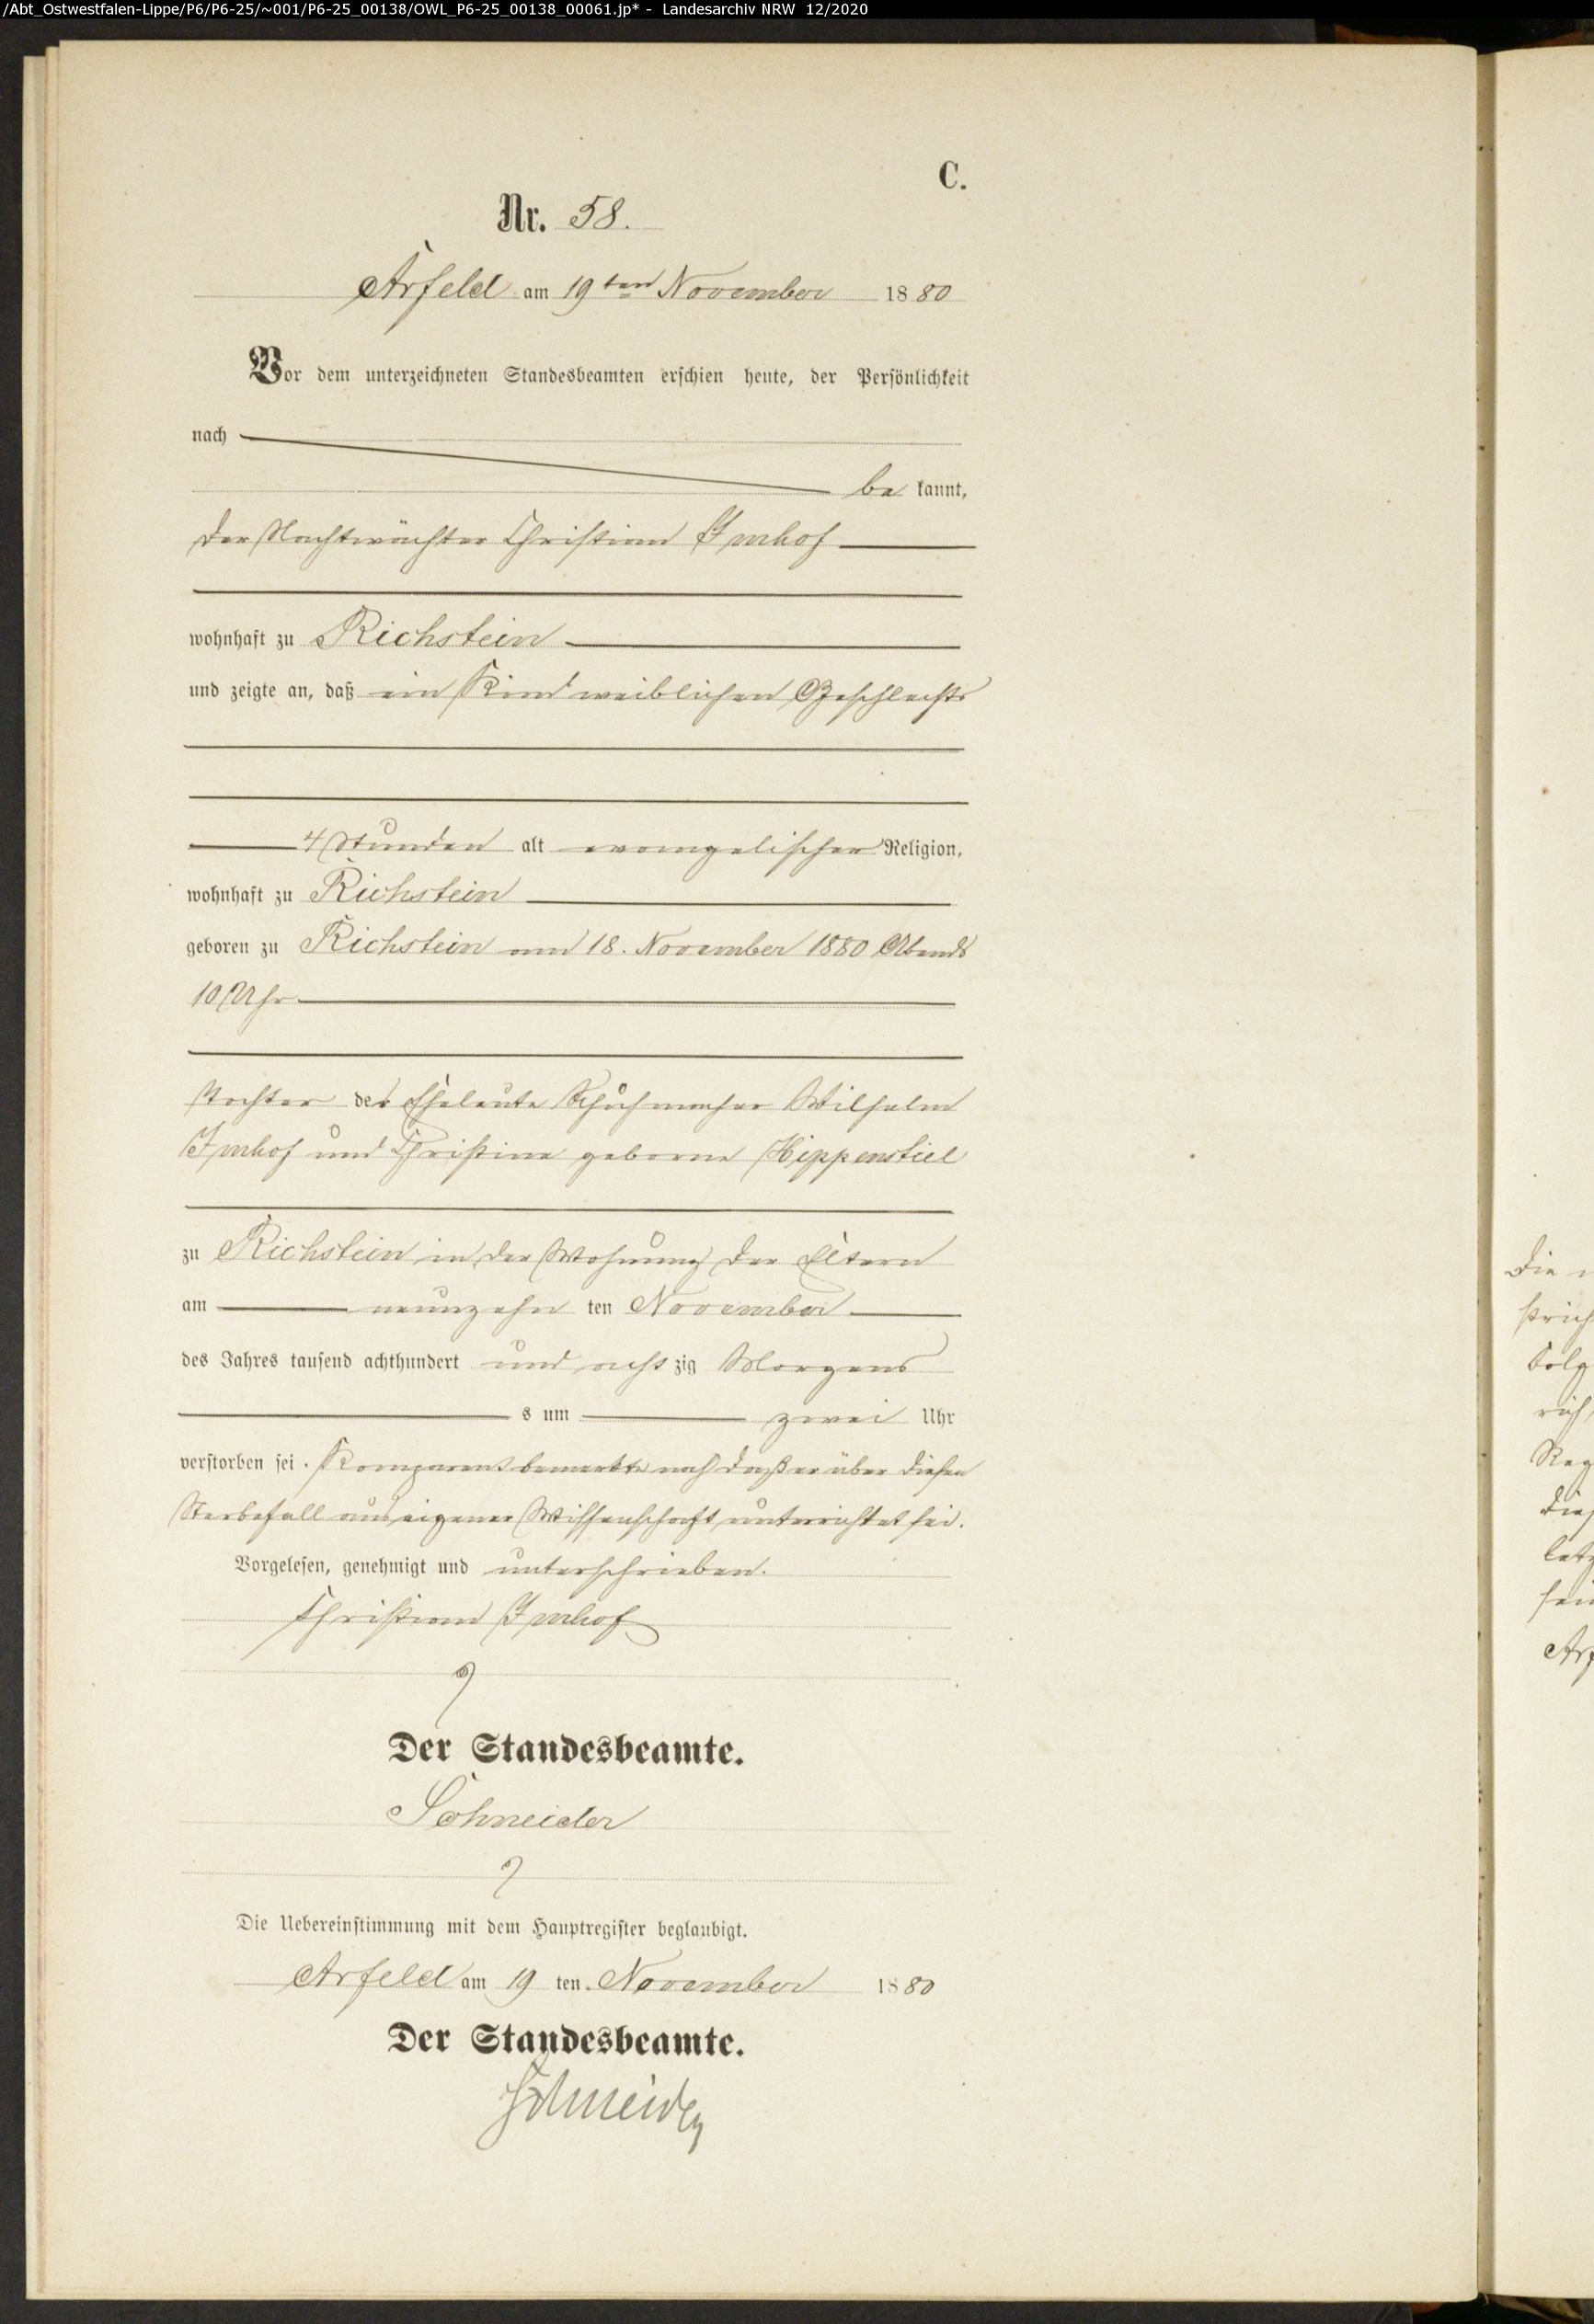 /Abt_Ostwestfalen-Lippe/P6/P6-25/~001/P6-25_00138/OWL_P6-25_00138_00061.jp* - Landesarchiv NRW 12/2020
C.
Nr. 58.
Arfeld am 19ten November 1880
Vor dem unterzeichneten Standesbeamten erschien heute, der Persönlichkeit
nach
be kannt,
der Nachtwächter Christian Imhof
wohnhaft zu Richstein
und zeigte an, daß ein Kind weiblichen Geschlechts
4 Stunden alt evangelischer Religion,
wohnhaft zu Richstein
geboren zu Richstein am 18. November 1880 Abends
10 Uhr
Tochter der Eheleute Schuhmacher Wilhelm
Imhof und Christine geborne Hippenstiel
zu Richstein in der Wohnung der Eltern
am neunzehn ten November
des Jahres tausend achthundert und acht zig Morgens
s um zwei Uhr
verstorben sei. Komparent bemerkte noch daß er über diesen
Sterbefall aus eigener Wissenschaft unterrichtet sei.
Vorgelesen, genehmigt und unterschrieben.
Christian Imhof
Der Standesbeamte.
Schneider
Die Uebereinstimmung mit dem Hauptregister beglaubigt.
Arfeld am 19 ten November 1880
Der Standesbeamte.
Schneider